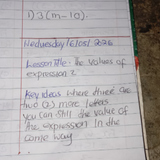 1) 3(m-10).
Wednesday 16/05/2026
Lesson Title: The values of
expression 2
Key ideas where there are
two (2) more letters
you can still the value of
the expression in the
same way